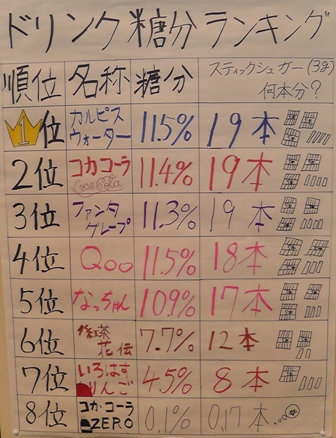 ドリンク糖分ランキング
順位 名称 糖分 スティックシュガー(3g)何本分?
1位 カルピスウォーター 11.5% 19本
2位 コカコーラ Coca-Cola 11.4% 19本
3位 ファンタグレープ 11.3% 19本
4位 Qoo 11.5% 18本
5位 なっちゃん 10.9% 17本
6位 紅茶花伝 7.7% 12本
7位 いろはすりんご 4.5% 8本
8位 コカ・コーラZERO 0.1% 0.17本